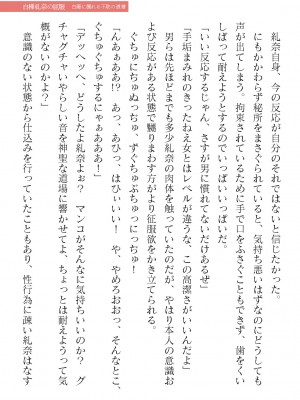 糺奈自身、今の反応が自分のそれではないと信じたかった。
にもかかわらず秘所をまさぐられていると、気持ち悪いはずなのにどうしても
声が出てしまう。拘束されているために手で口をふさぐこともできず、歯をくい
しばって耐えようとするのでいっぱいいっぱいだ。
「いい反応するじゃん、さすが男に慣れてないだけあるぜ」
「手垢まみれのきったねえ女とはレベルが違うな、この高潔さがいいんだよ」
男らは先ほどまでも多少糺奈の肉体を触っていたのだが、やはり本人の意識お
よび反応がある状態で嬲りまわす方がより征服欲をかき立てられる。
ぐちゅにちゅぬっちゅ、ずぐちゅぶちゅっにっちゅ!
「んあぁああ!? あっ、あひっ、はひぃいい! や、やめろおおっ、そんなとこ、
ぐちゅぐちゅするにゃぁあああ!」
「アッヘッヘ、どうしたよ糺奈よぉ? マンコがそんなに気持ちいいのか? グ
チャグチャいやらしい音を神聖な道場に響かせてよ、ちょっとは耐えようって気
概がないのかよ?」
意識のない状態から仕込みを行っていたこともあり、性行為に疎い糺奈はなす